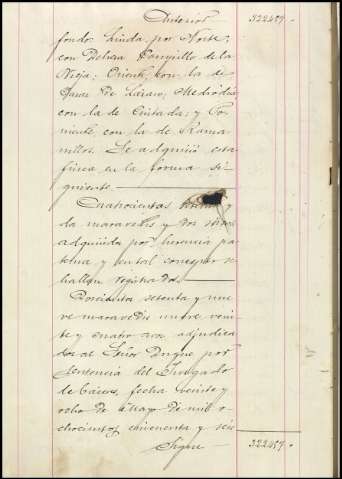 Anterior 322457.
fondo. Linda, por Norte,
con Dehesa Campillo de la
Vieja; Oriente, con la de
Mediodia
con la de Cintada; y Po-
niente con la de Rama-
nillos. Se adquirió esta
finca en la forma si-
guiente.
Cuatrocientas y
da maravedis y dos
adquirida por herencia pa-
terna y en tal concepto se
hallan registrados.
Doscientos setenta y nue
ve maravedis un tre. vein-
te y cuatro avs. adjudica
dos al Señor Duque por
Sentencia del Juzgado
de Cáceres, fecha veinte y
ocho de Mayo de mil o-
chocientos cincuenta y seis
Sigue 322457.